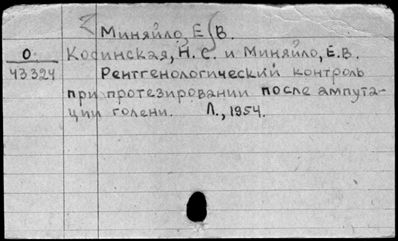 Миняйло, Е.В.
О
43324
Косинская, Н. С. и Миняйло, Е.В.
Рентгенологический контроль
при протезировании после ампута-
ции голени. Л., 1954.